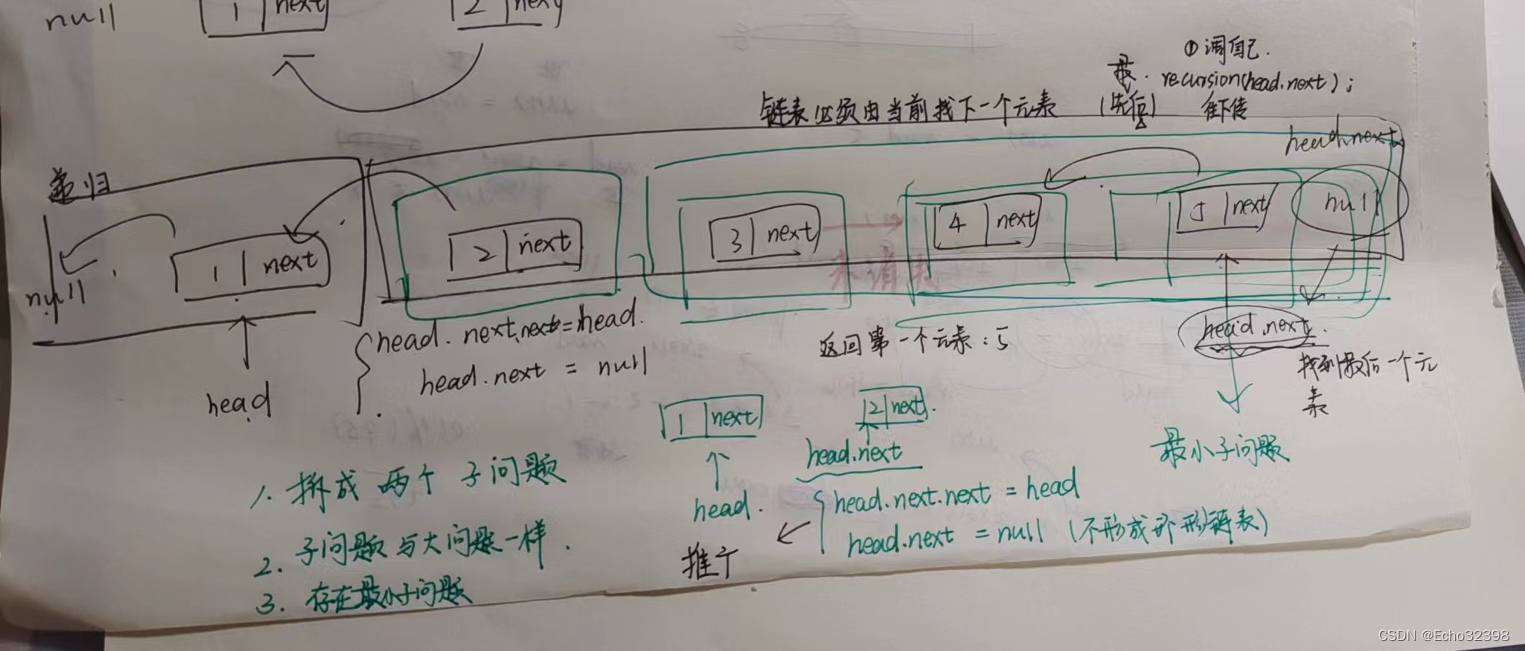 null
1 next
2 next
①调自己.
recursion(head.next);
往下传
链表必须由当前找下一个元素
head.next
递归
null
1 next
2 next
3 next
4 next
5 next
null
head
head.next.next=head.
head.next = null
返回第一个元素:5
head.next.
找到最后一个元
素
最小子问题
1 next
head.
2 next.
head.next
head.next.next = head
head.next = null (不形成环形链表)
推广
1. 拆成 两个 子问题
2. 子问题与大问题一样.
3. 存在最小子问题
CSDN @Echo32398